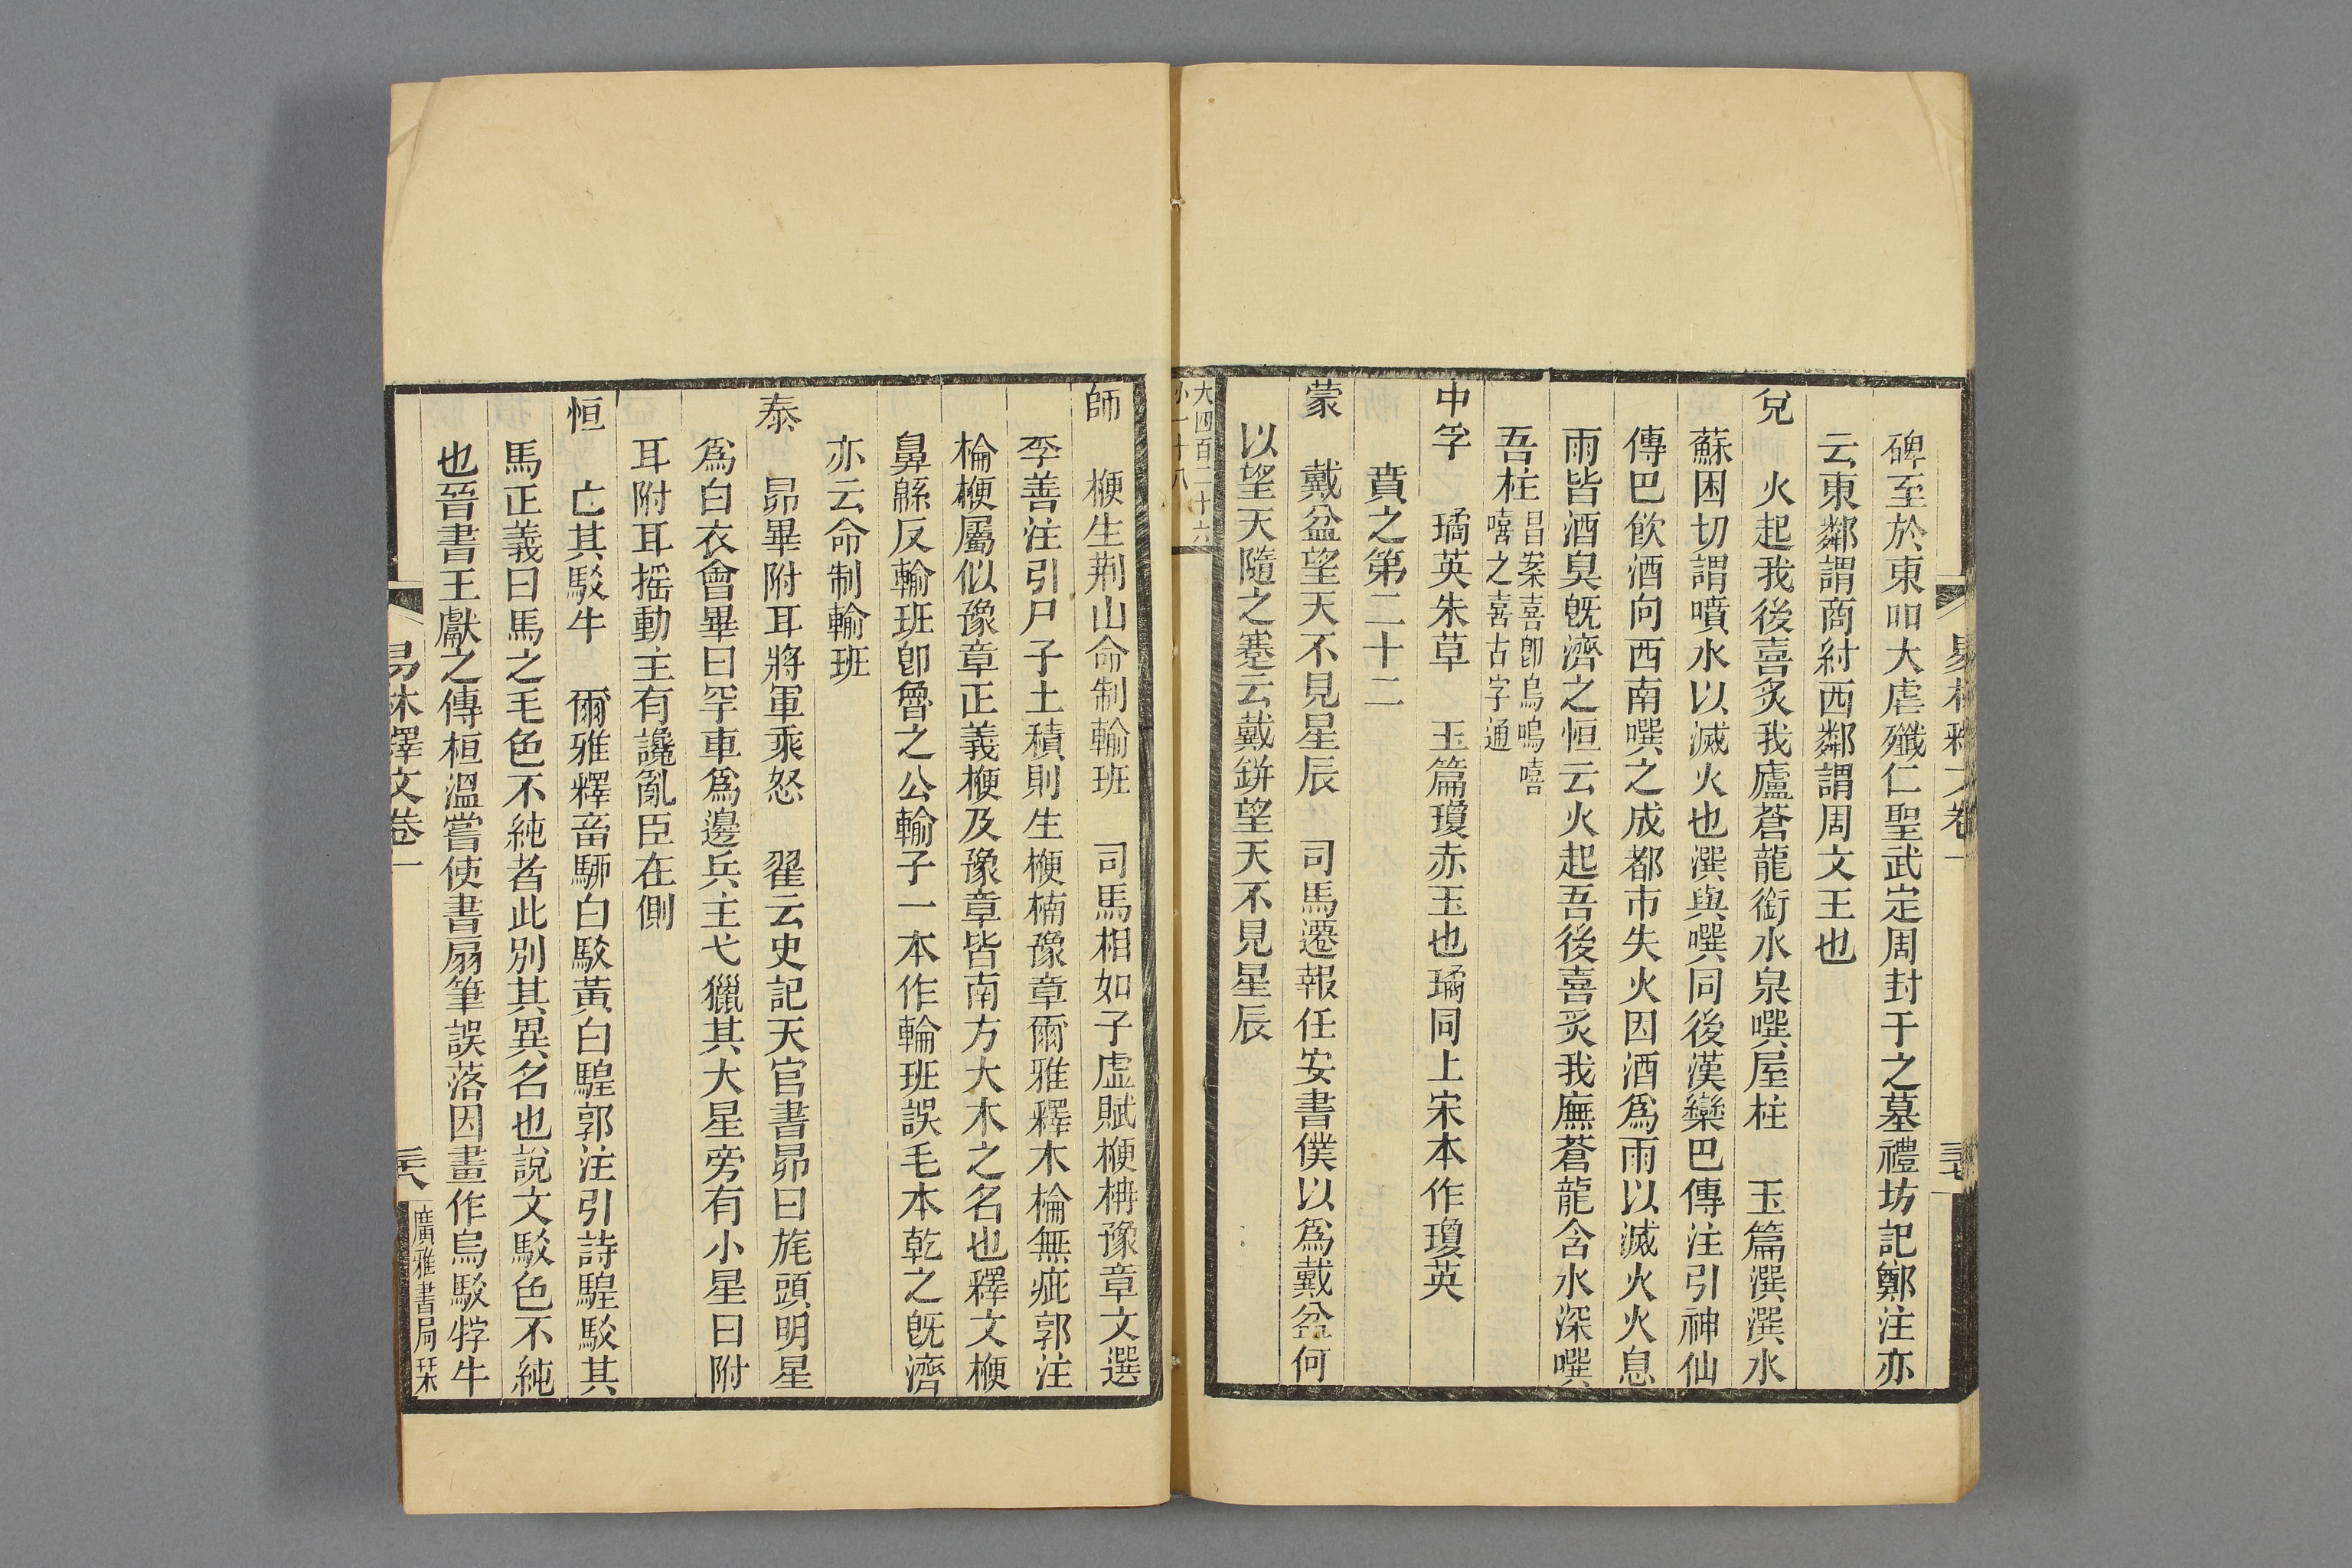 碑至於東吅大虐殲仁聖武定周封于之墓禮坊記鄭注亦
云東鄰謂商紂西鄰謂周文王也
兌　火起我後喜炙我廬蒼龍銜水泉噀屋柱　玉篇潠潠水
蘇困切謂噴水以滅火也潠與噀同後漢欒巴傳注引神仙
傳巴飲酒向西南噀之成都市失火因酒為雨以滅火火息
雨皆酒臭旣濟之恒云火起吾後喜炙我廡蒼龍含水深噀
吾柱昌案喜卽烏嗚嘻
嘻之喜古字通
中孚　璚英朱草　玉篇瓊赤玉也璚同上宋本作瓊英
賁之第二十二
蒙　戴盆望天不見星辰　司馬遷報任安書僕以為戴盆何
以望天隨之蹇云戴缾望天不見星辰
大四百二十六
小一十八
師　楩生荆山命制輸班　司馬相如子虛賦楩枏豫章文選
李善注引尸子土積則生楩楠豫章爾雅釋木棆無疵郭注
棆楩屬似豫章正義楩及豫章皆南方大木之名也釋文楩
鼻緜反輸班卽魯之公輸子一本作輪班誤毛本乾之旣濟
亦云命制輸班
泰　昴畢附耳將軍乘怒　翟云史記天官書昴曰旄頭明星
為白衣會畢曰罕車為邊兵主弋獵其大星旁有小星曰附
耳附耳搖動主有讒亂臣在側
恒　亡其駁牛　爾雅釋畜駵白駁黃白騜郭注引詩騜駁其
馬正義曰馬之毛色不純者此別其異名也說文駁色不純
也晉書王獻之傳桓溫嘗使書扇筆誤落因畫作烏駁牸牛
易林釋文卷一
廣雅書局栞